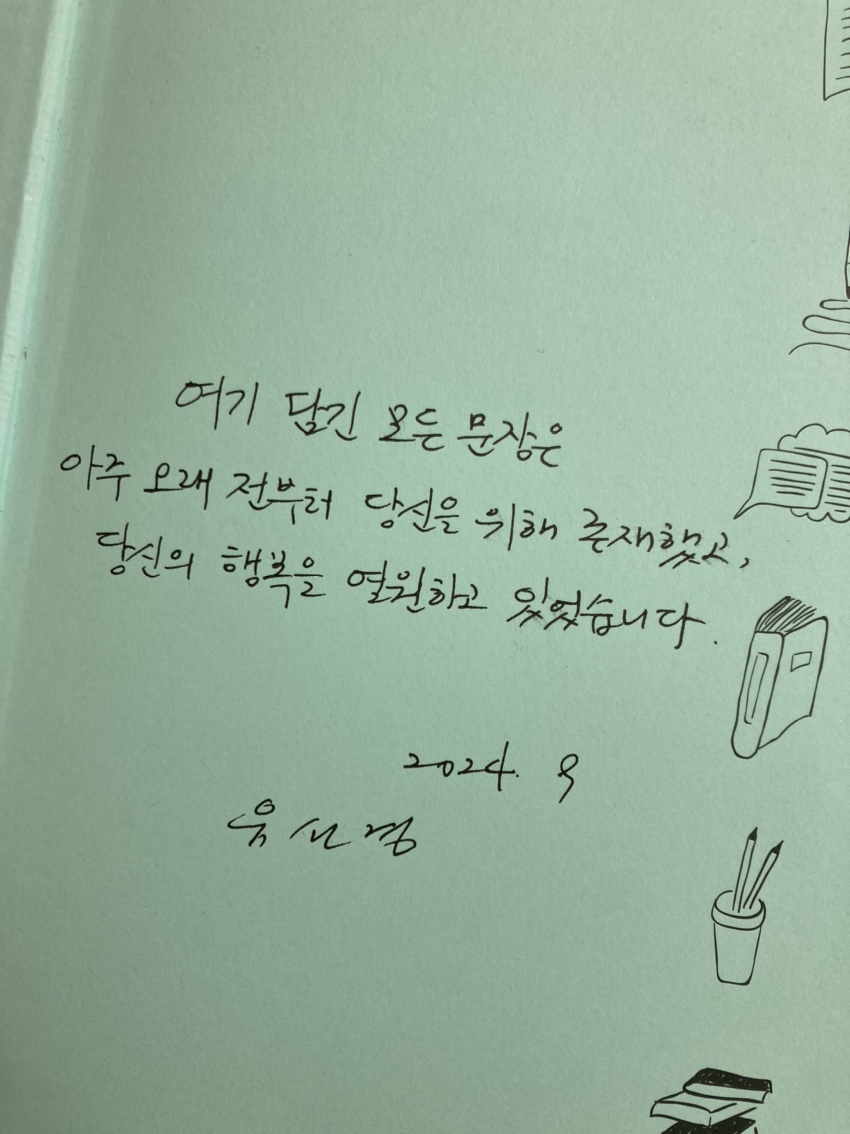 여기 담긴 모든 문장은
아주 오래 전부터 당신을 위해 존재했고,
당신의 행복을 열원하고 있었습니다.
2024. 9
유선경